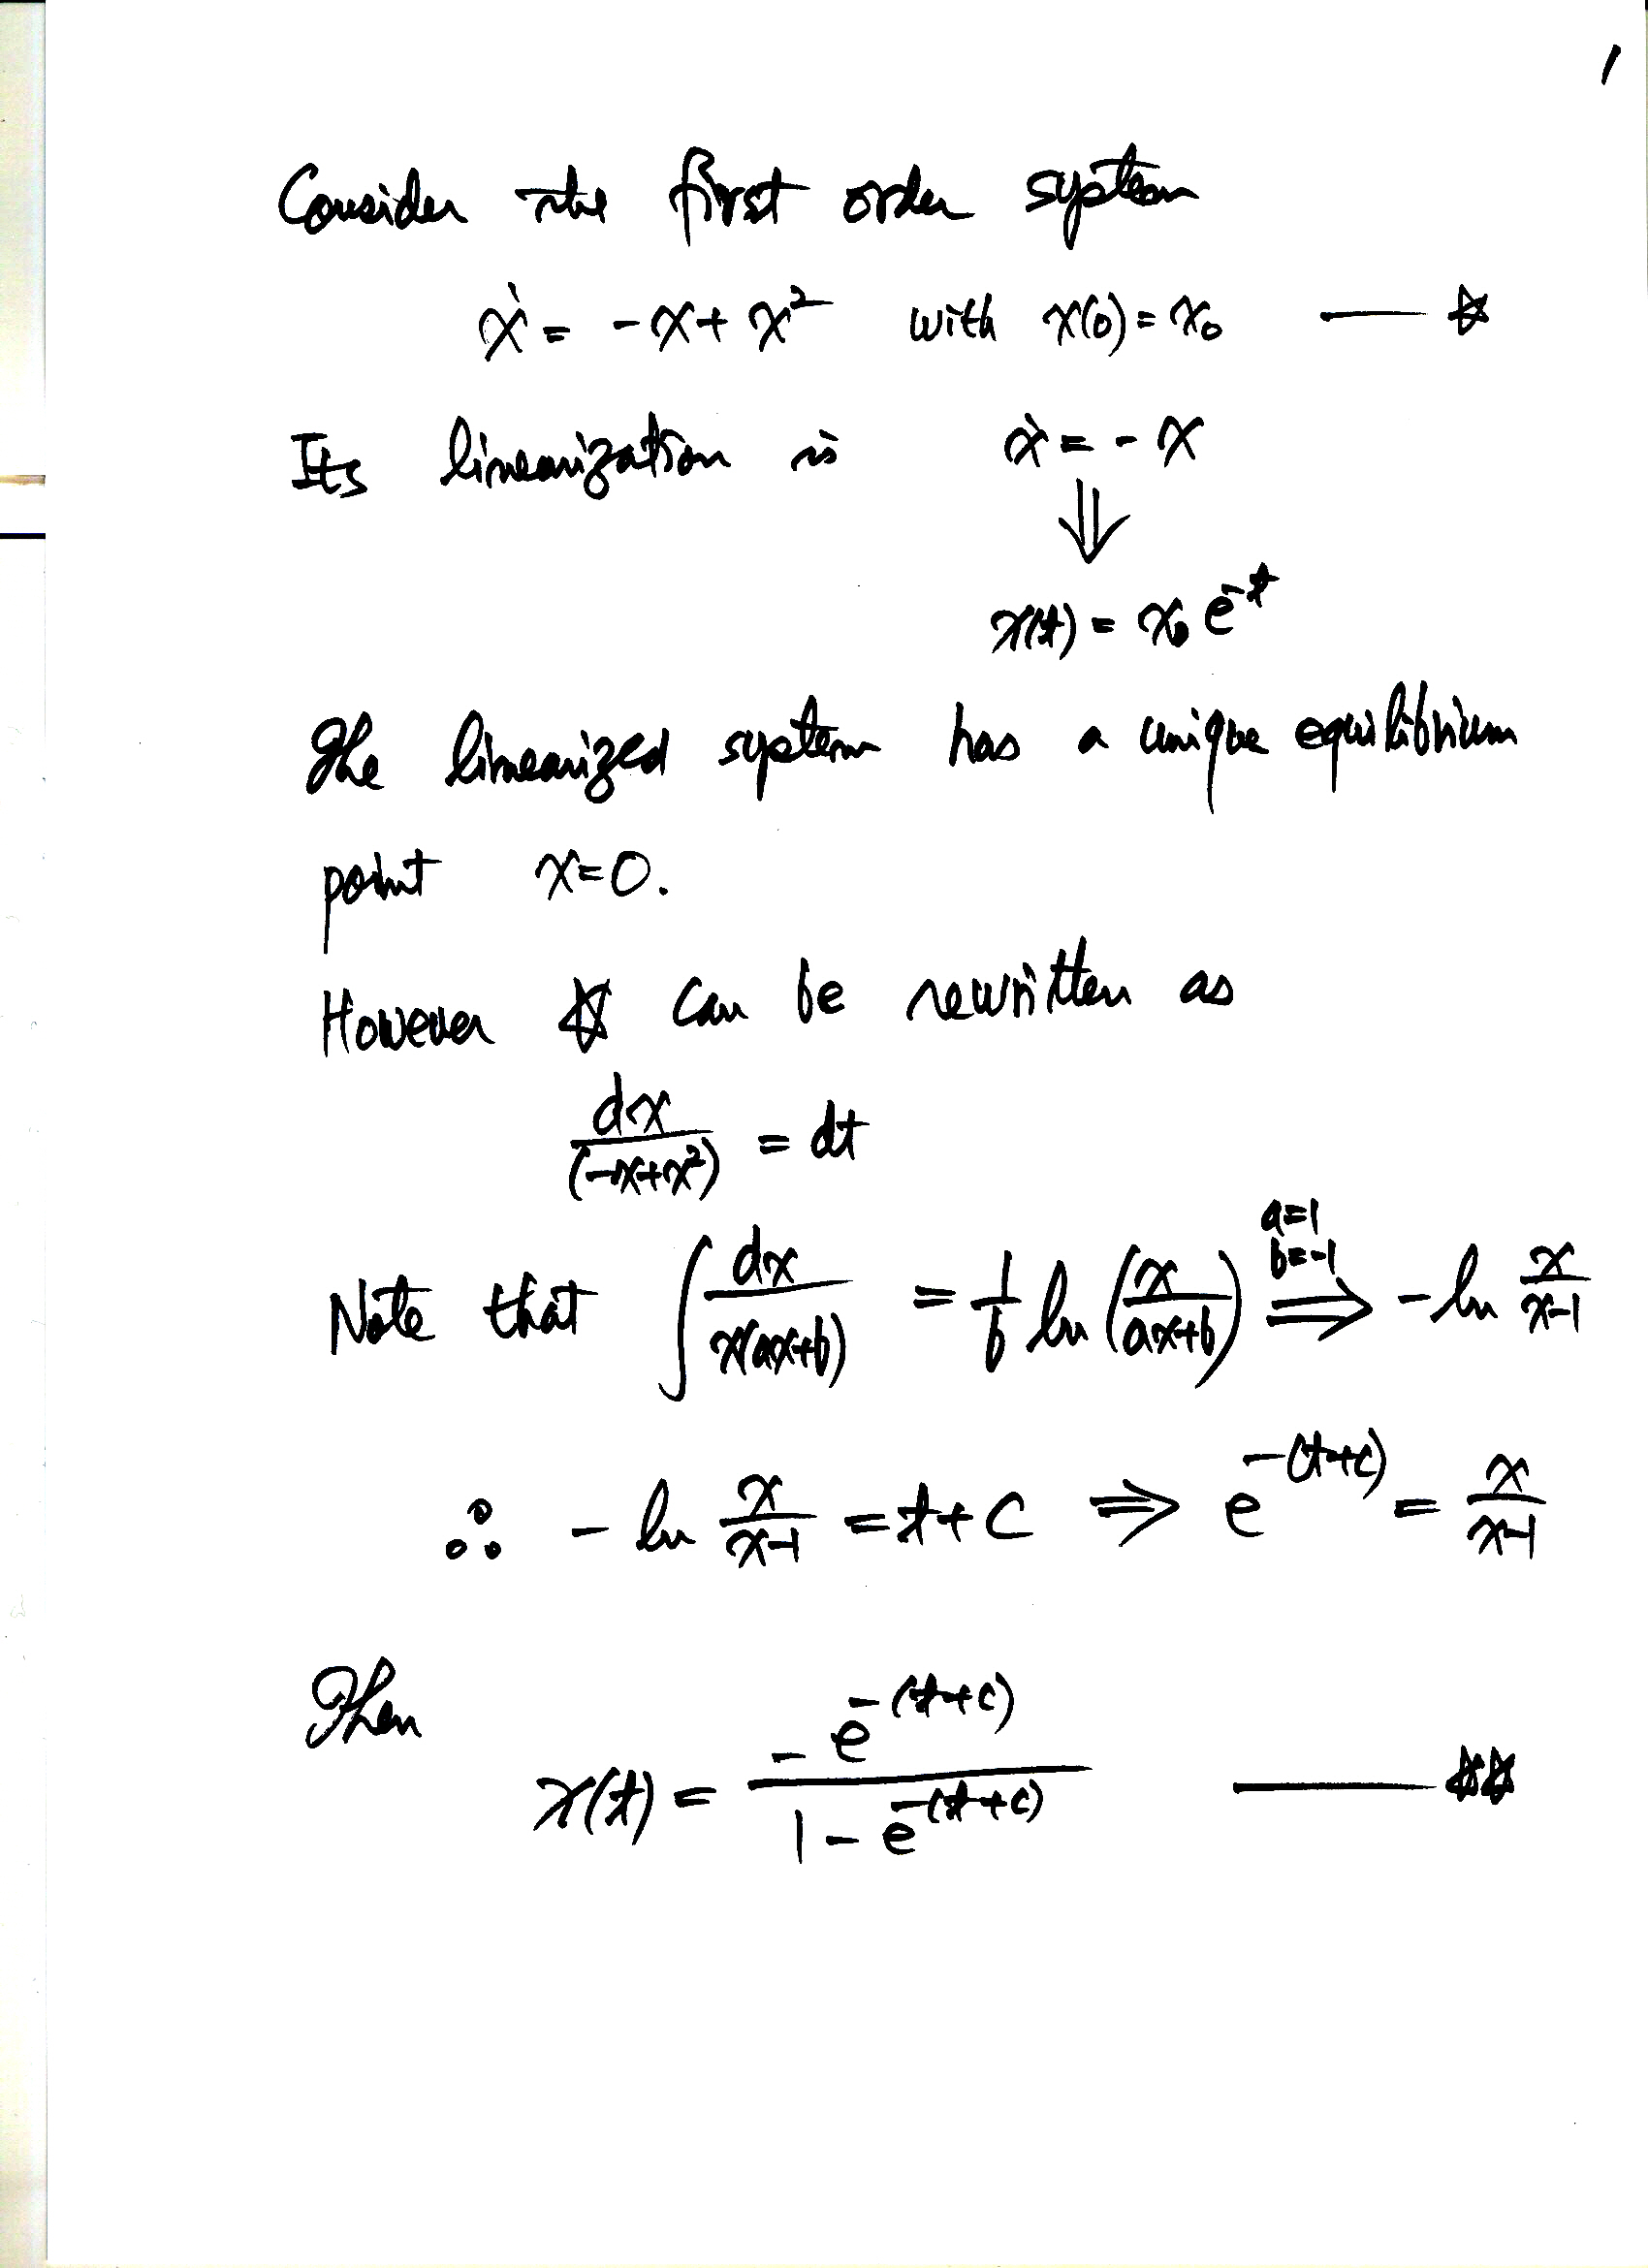 1
Consider the first order system
ẋ = -x + x² with x(0) = x₀ — ☆
Its linearization is ẋ = -x
⇓
x(t) = x₀ e^{-t}
The linearized system has a unique equilibrium
point x=0.
However ☆ can be rewritten as
dx/(-x+x²) = dt
Note that ∫ dx/(x(ax+b)) = 1/b ln (x/(ax+b)) ⟹ (a=1, b=-1) -ln x/(x-1)
∴ -ln x/(x-1) = t+c ⟹ e^{-(t+c)} = x/(x-1)
Then
x(t) = -e^{-(t+c)} / (1 - e^{-(t+c)}) — ☆☆